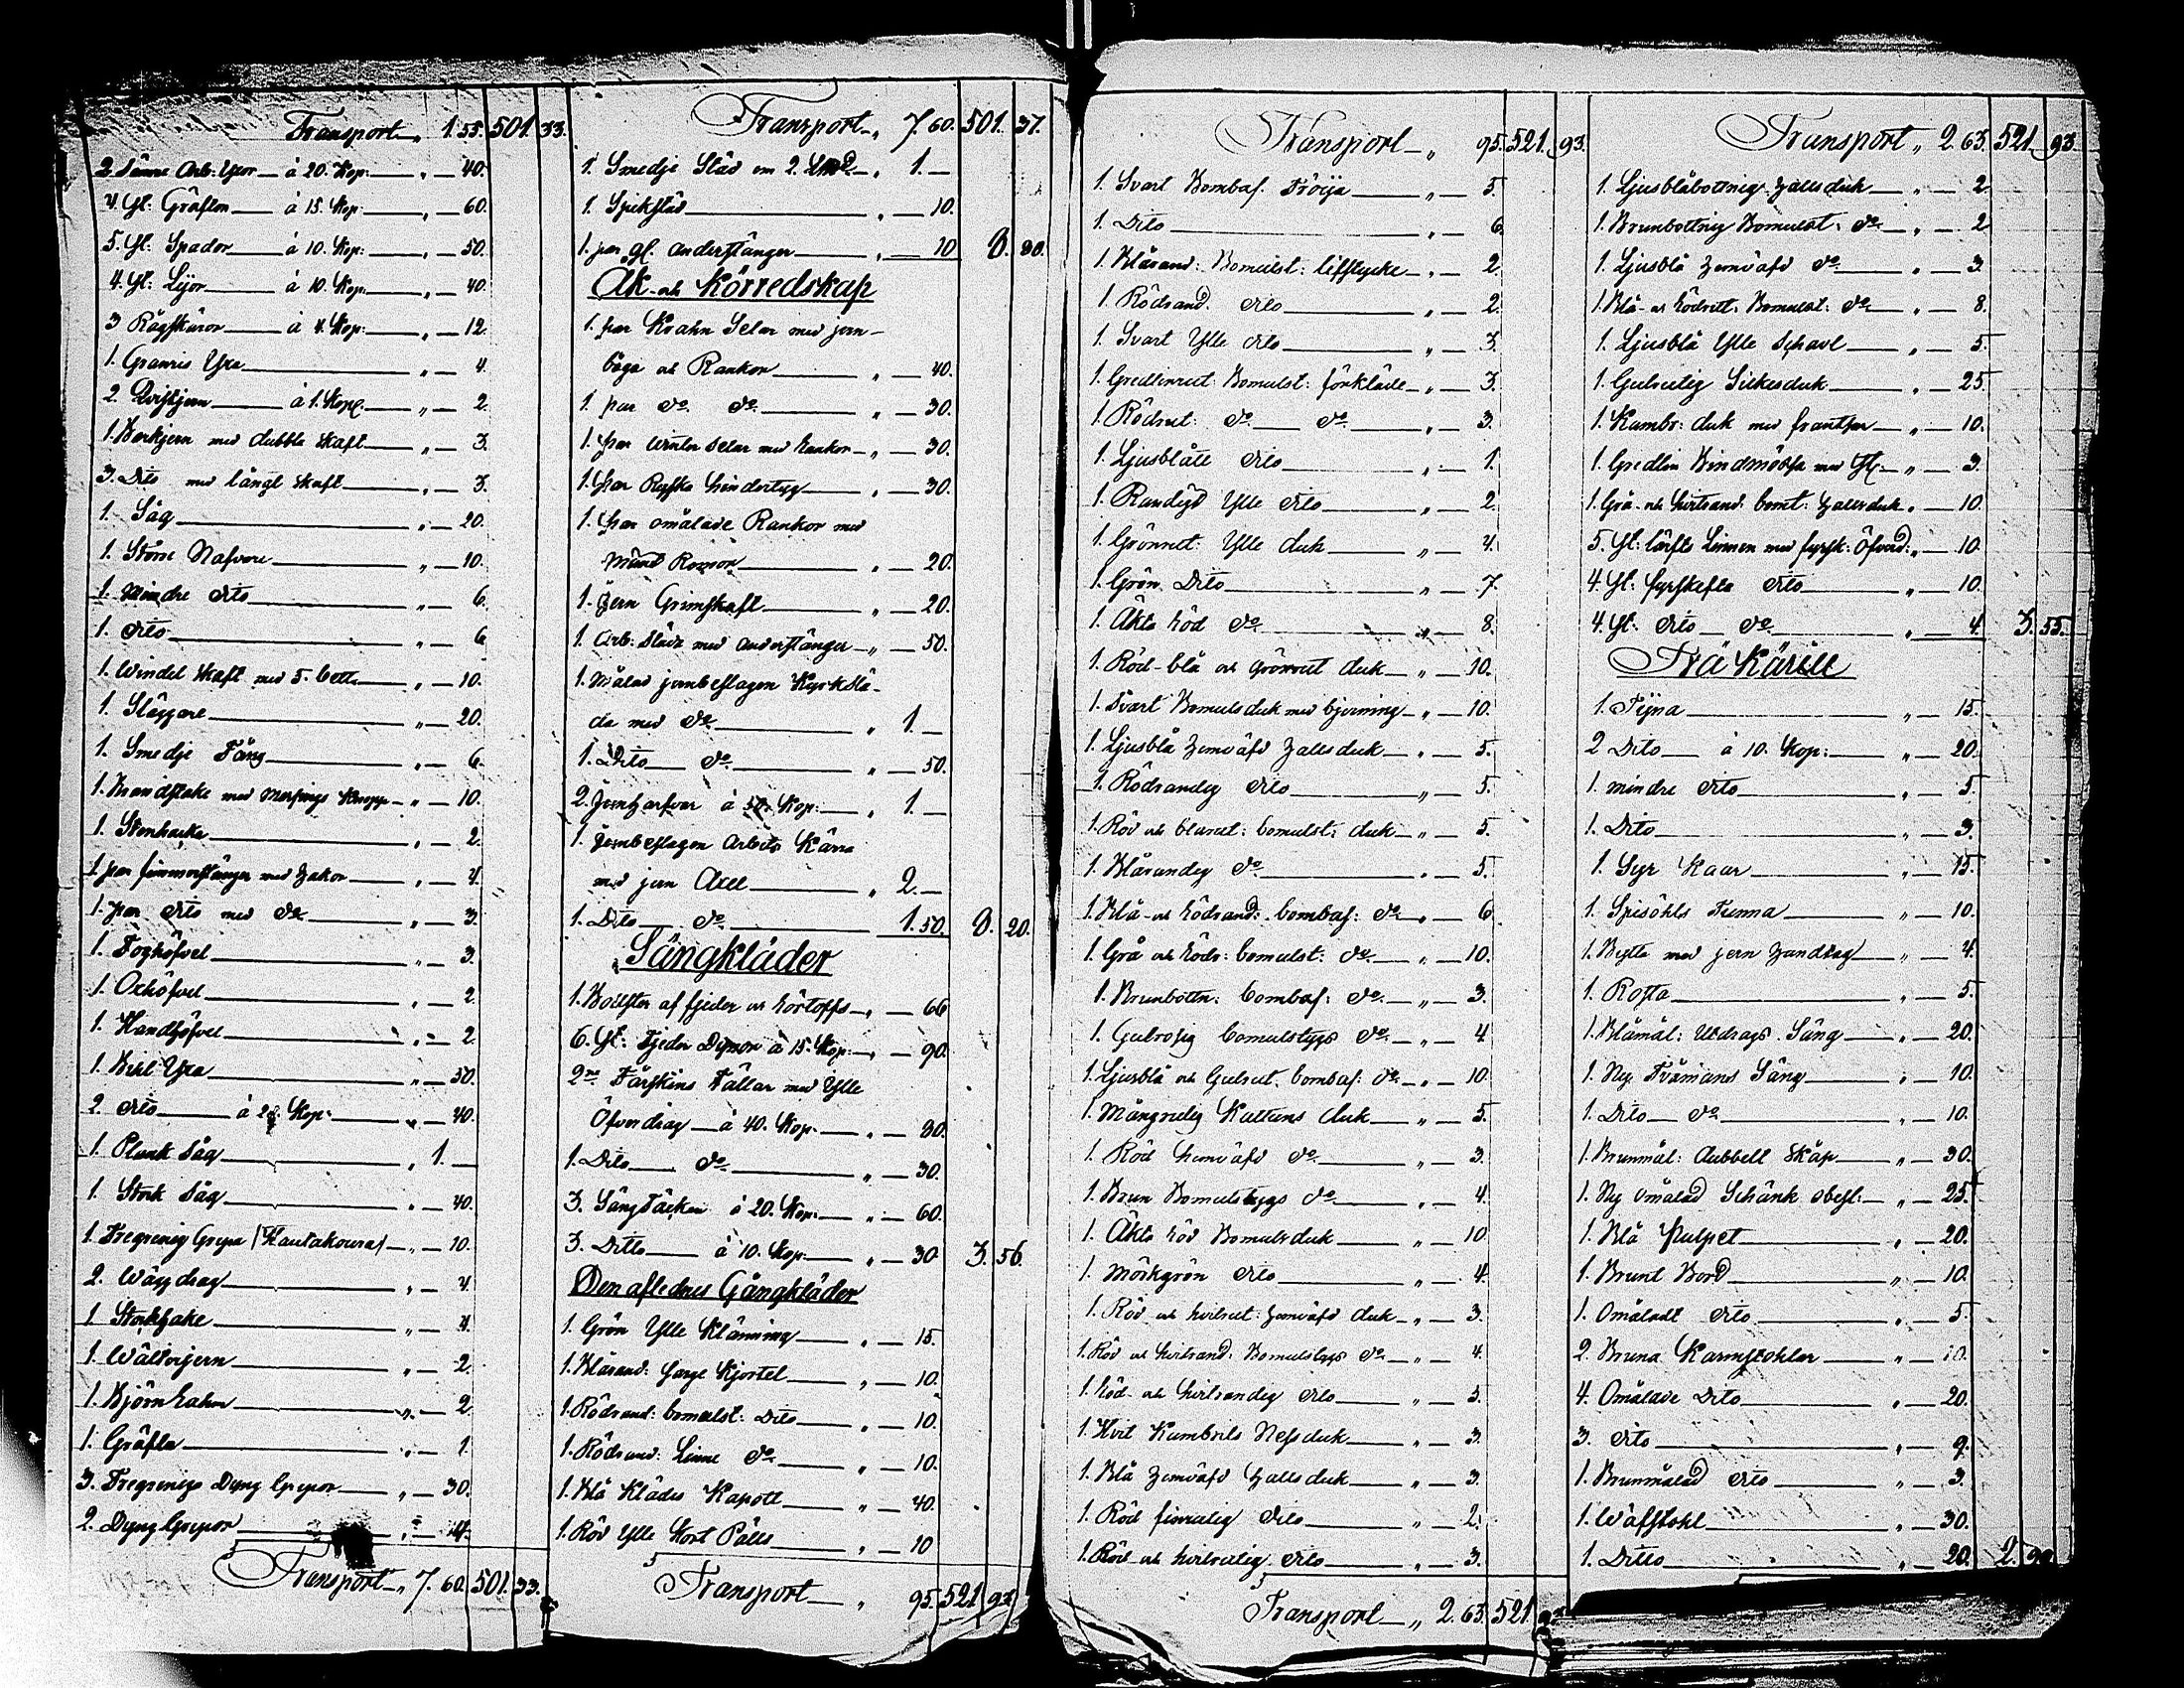 Transport „ 1. 55. 501. 33.
2. sämre Arb: Yxor à 20. Kop: „ 40.
4. St: Gräftor à 15. Kop: „ 60.
5. St: Spador à 10. Kop: „ 50.
4. St: Lijor à 10. Kop: „ 40.
3 Rågskäror à 4. Kop: „ 12
1. Granris Yxa „ 4.
2. à 1. Kop: „ 2.
1. Barkjern med dubbla skaft „ 3.
3. Dito med långt skaft „ 3.
1. Såg „ 20.
1. Större Nafvare „ 10.
1. Mindre dito „ 6.
1. dito „ 6
1. Windel skaft med 5. bett „ 10.
1. Släggare „ 20.
1. Smedje Tång „ 6.
1. Brandstake med Messings Knopp „ 10.
1. Stenhacka „ 2.
1. par timmerstänger med hakor „ 4.
1. par dito med do „ 3.
1. Foghöfvel „ 3.
1. Oxhöfvel „ 2.
1. Handhöfvel „ 2.
1. Bihl Yxa „ 30.
2. dito à 20. Kop: „ 40.
1. Plank såg „ 1. —
1. Stock såg „ 40.
1. Tregrenig Grepa (Kautakoura) „ 10.
2. Wäg drag „ 4.
1. Stockhake „ 4.
1. Wältvijern „ 2.
1. Björn „ 2
1. Gräfta „ 1.
3. Tregrenige Dyng Grepor „ 30.
2. Dyng Grepor „ 4.
Transport „ 7. 60. 501. 33.
Transport „ 7. 60. 501. 37.
1. Smedje Städ om 2. „ 1. —
1. Spikstäd „ 10.
1. par gl. Anderstänger „ 10 8. 80.
Åk- och Körredskap
1. par Krahn Selar med jern-
båga och Rankor „ 40.
1. par do do „ 30.
1. par Winter Selar med Rankor „ 30.
1. par Ryska hindertyg „ 30.
1. par omålade Rankor med
„ 20.
1. Jern Grimskaft „ 20.
1. Arb: släda med Anderstänger „ 50.
1. Målad jernbeslagen Kyrkslä-
da med do „ 1. —
1. Dito do „ 50.
2. Jernharfvar à 50. Kop: „ 1. —
1. Jernbeslagen Arbets Kärra
med jern Axel „ 2. —
1. Dito do 1. 50. 8. 20.
Sängkläder
1. Bolster af fjeder och hörtoffs „ 66
6. St: Fjeder Dynor à 15. Kop: „ 90.
2ne Fårskins Fällar med Ylle
Öfverdrag à 40. Kop. „ 80.
1. Dito do „ 30.
3. Sängtäcken à 20. Kop: „ 60.
3. Ditto à 10. Kop: „ 30 3. 56.
Den aflednes Gångkläder
1. Grön Ylle Klänning „ 15.
1. Blårand: Kjortel „ 10.
1. Rödrand: bomulst: Dito „ 10.
1. Rödrand: Linne do „ 10.
1. Blå Klädes Kapott „ 40.
1. Röd Ylle Kort Päls „ 10
Transport „ 95. 521. 93.
Transport „ 95. 521. 93.
1. Svart Bombas. Tröija „ 5.
1. Dito „ 6
1. Blårand: Bomulst: lifstycke „ 2.
1. Rödrand. dito „ 2.
1. Svart Ylle dito „ 3.
1. Gredlinrut: Bomulst: förkläde „ 3.
1. Rödrut: do do „ 3.
1. Ljusblått dito „ 1.
1. Randigt Ylle dito „ 2
1. Grönrut: Ylle duk „ 4.
1. Grön Dito „ 7
1. Äkta röd do „ 8.
1. Röd-blå och Grönrut duk „ 10.
1. Svart Bomulsduk med bjerning „ 10.
1. Ljusblå hemväfd halsduk „ 5.
1. Rödrandig dito „ 5.
1. Röd och blårut: bomulst: duk „ 5.
1. Blårandig do „ 5.
1. Blå- och rödrand: bombas: do „ 6
1. Grå och rödr: bomulst: do „ 10.
1. Brunbottn: bombas: do „ 3.
1. Gulrosig bomulstygs do „ 4
1. Ljusblå och Gulrut. bombas: do „ 10.
1. Mångrutig Kattuns duk „ 5.
1. Röd hemväfd do „ 3.
1. Brun Bomulstygs do „ 4.
1. Äkta röd Bomulsduk „ 10
1. Mörkgrön dito „ 4.
1. Röd och hvitrut: hemväfd duk „ 3.
1. Röd och hvitrand: Bomulstygs do „ 4.
1. Röd- och hvitrandig dito „ 3.
1. Hvit Kambrits Nesduk „ 3.
1. Blå hemväfd halsduk „ 3.
1. Röd finrutig dito „ 2.
1. Röd- och hvitrutig dito „ 3.
Transport „ 2. 63. 521. 93.
Transport „ 2. 63. 521. 93
1. Ljusblåbottnig halsduk „ 2
1. Brunbottnig Bomulst: do „ 2
1. Ljusblå hemväfd do „ 3.
1. Blå- och rödrut. Bomulst: do „ 8.
1. Ljusblå Ylle Schavl „ 5.
1. Gulrutig Silkesduk „ 25.
1. Kambr: duk med frantsar „ 10.
1. Gredlin Bindmössa med „ 3.
1. Grå- och hvitrand: bomt: halsduk „ 10.
5. St: lärfts Linnen med fyrsk: Öfverd: „ 10.
4. St: fyrskefta dito „ 10.
4. St: dito do „ 4. 3. 55.
Trä Käril
1. Tijna „ 15.
2 Dito à 10. Kop: „ 20.
1. mindre dito „ 5.
1. Dito „ 3.
1. Syr Kaar „ 15.
1. Spisöhls Tunna „ 10.
1. Bytta med jern handtag „ 4.
1. „ 5.
1. Blåmål: Utdrags Säng „ 20.
1. Ny Tvåmans Säng „ 10.
1. Dito do „ 10.
1. Brunmål: dubbelt Skåp „ 30.
1. Ny Omålad Schänk obesl: „ 25
1. Blå Pulpet „ 20.
1. Brunt Bord „ 10.
1. Omåladt dito „ 5.
2. Bruna Karmstohlar „ 10.
4. Omålade Dito „ 20.
3. dito „ 9.
1. Brunmålad dito „ 3
1. Wäfstohl „ 30.
1. Ditto „ 20. 2.